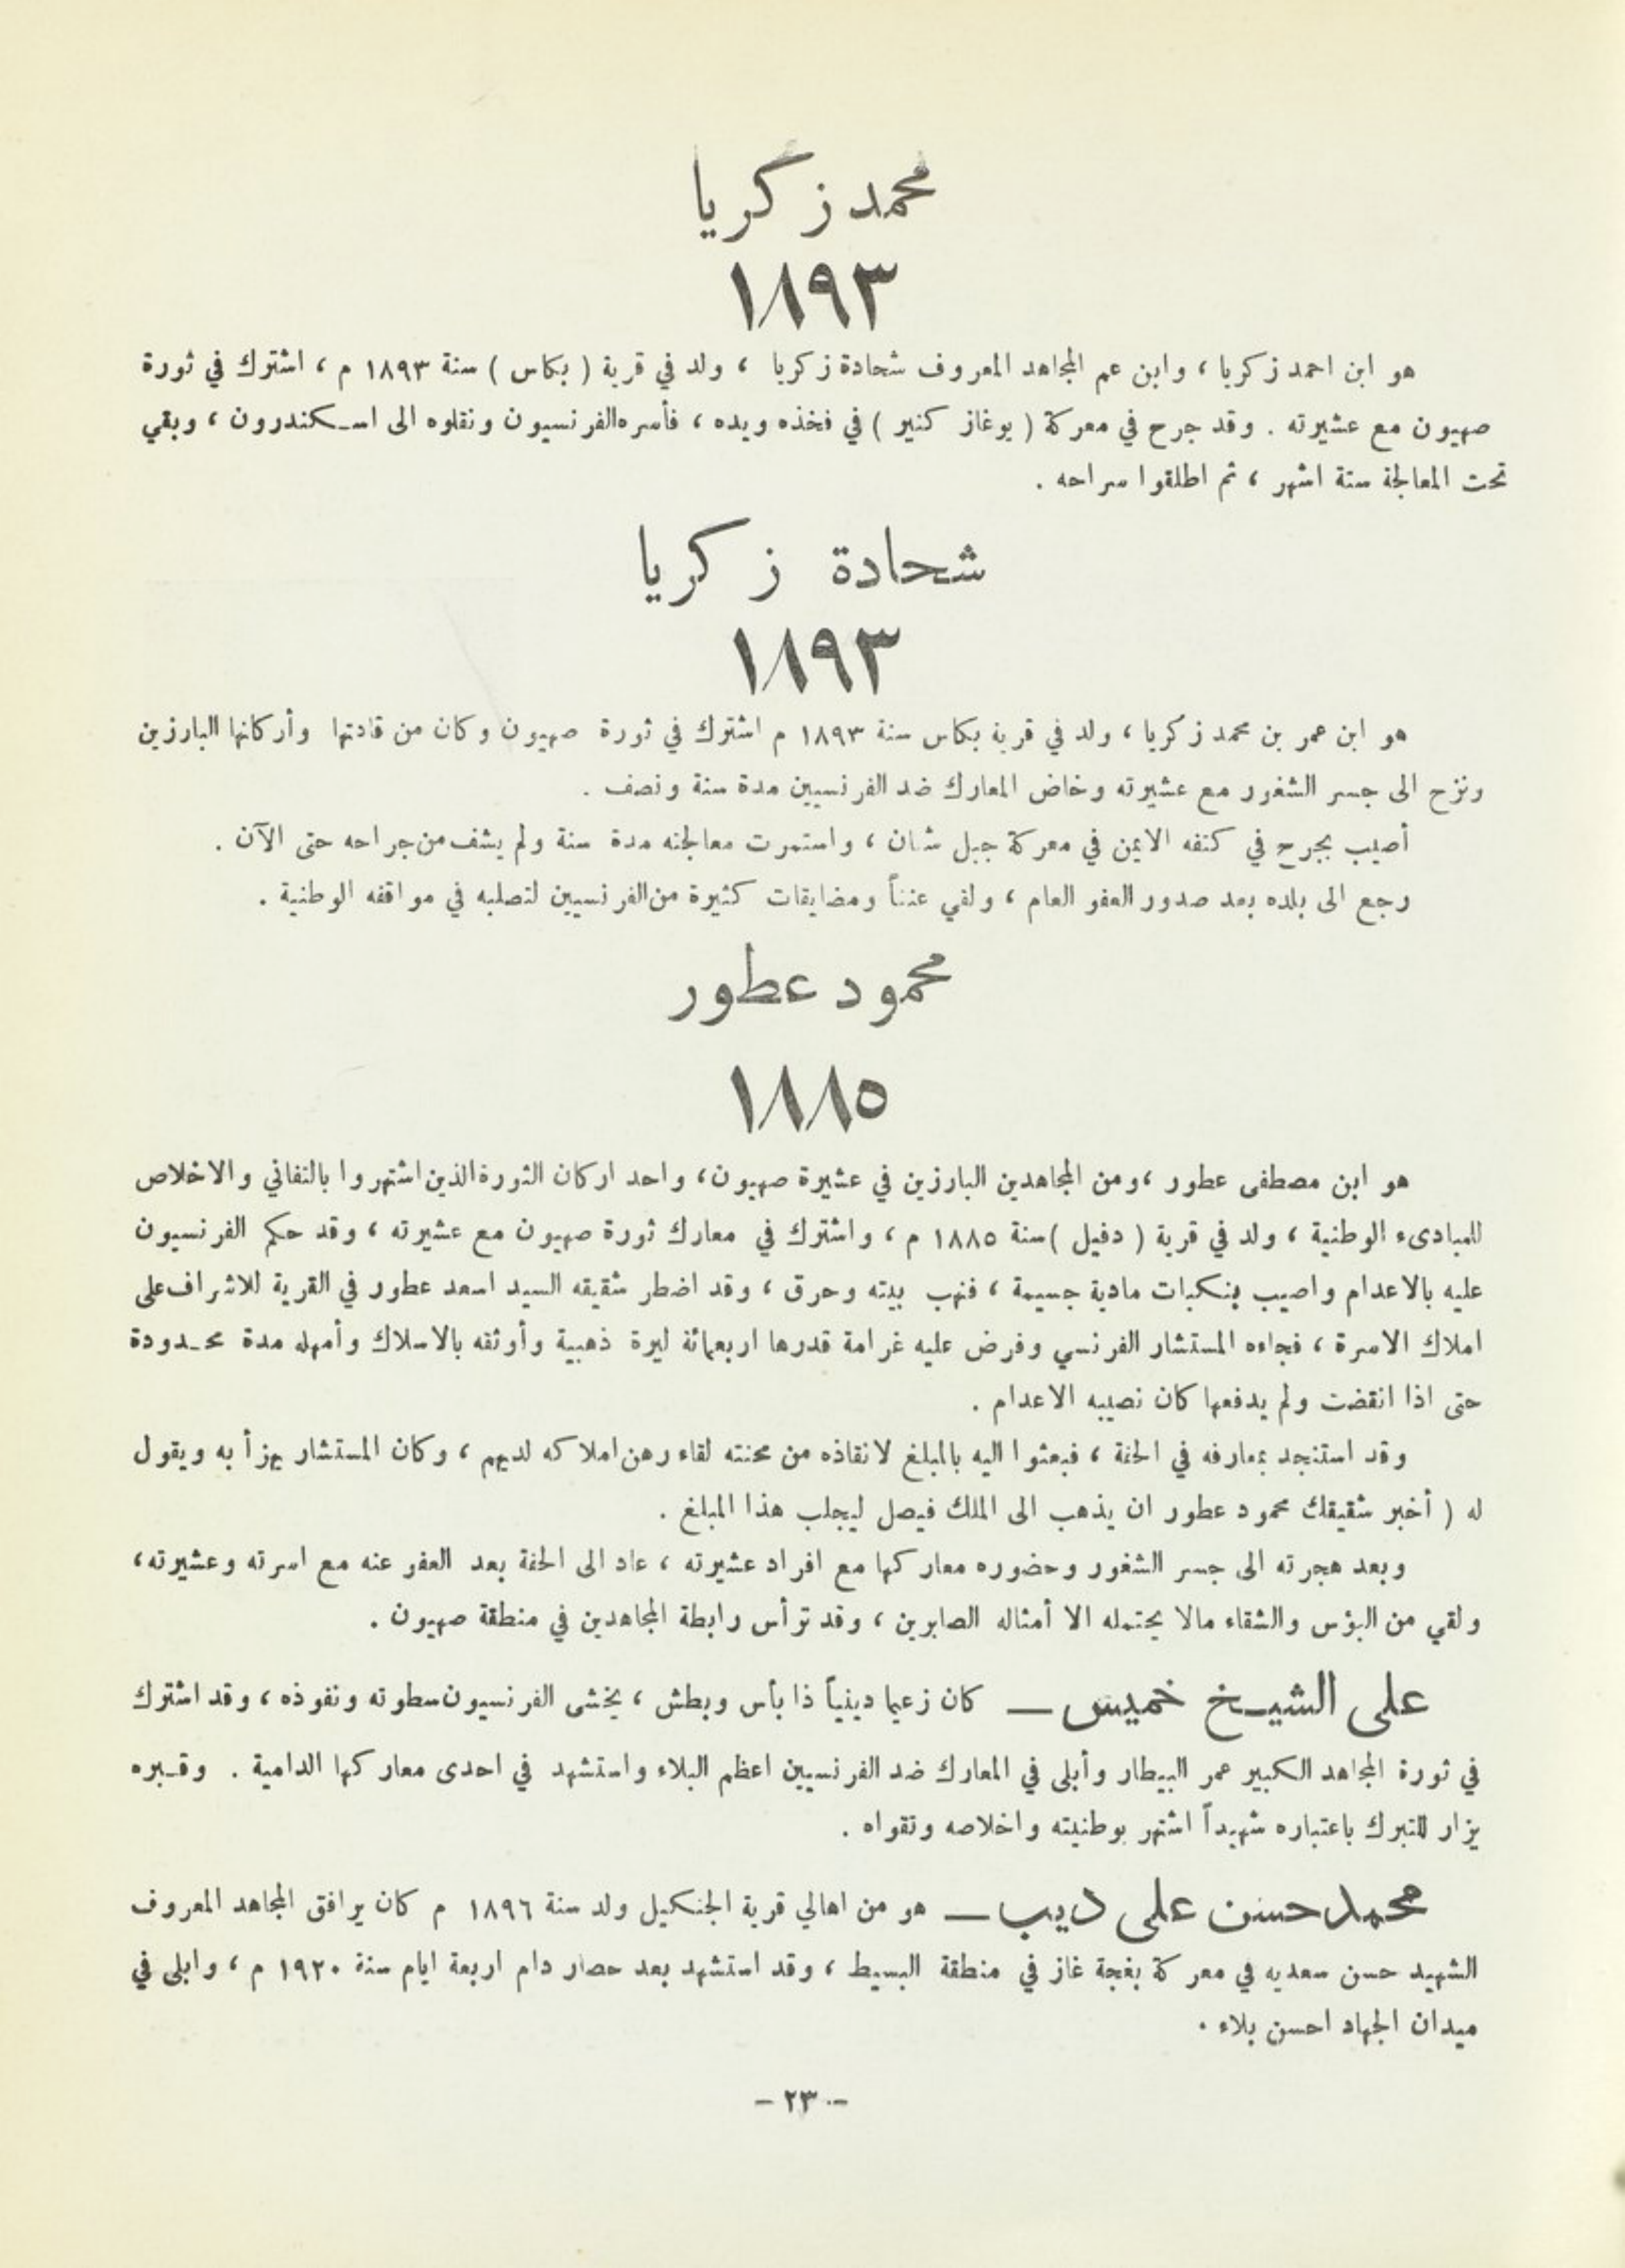 محمد زكريا
١٨٩٣
هو ابن احمد زكريا ، وابن عم المجاهد المعروف شحادة زكريا ، ولد في قرية ( بكاس ) سنة ١٨٩٣ م ، اشترك في ثورة
صهيون مع عشيرته . وقد جرح في معركة ( يوغاز كنير ) في فخذه ويده ، فأسره الفرنسيون ونقلوه الى اسكندرون ، وبقي
تحت المعالجة ستة اشهر ، ثم اطلقوا سراحه .
شحادة زكريا
١٨٩٣
هو ابن عمر بن محمد زكريا ، ولد في قرية بكاس سنة ١٨٩٣ م اشترك في ثورة صهيون وكان من قادتها وأركانها البارزين
ونزح الى جسر الشغور مع عشيرته وخاض المعارك ضد الفرنسيين مدة سنة ونصف .
أصيب بجرح في كتفه الايمن في معركة جبل شان ، واستمرت معالجته مدة سنة ولم يشف من جراحه حتى الآن .
رجع الى بلده بعد صدور العفو العام ، ولقي عنتاً ومضايقات كثيرة من الفرنسيين لتصلبه في مواقفه الوطنية .
محمود عطور
١٨٨٥
هو ابن مصطفى عطور ، ومن المجاهدين البارزين في عشيرة صهيون ، واحد اركان الثورة الذين اشتهروا بالتفاني والاخلاص
للمبادىء الوطنية ، ولد في قرية ( دفيل ) سنة ١٨٨٥ م ، واشترك في معارك ثورة صهيون مع عشيرته ، وقد حكم الفرنسيون
عليه بالاعدام واصيب بنكبات مادية جسيمة ، فنهب بيته وحرق ، وقد اضطر شقيقه السيد اسعد عطور في القرية للاشراف على
املاك الاسرة ، فجاءه المستشار الفرنسي وفرض عليه غرامة قدرها اربعمائة ليرة ذهبية وأوثقه بالاسلاك وأمهله مدة محدودة
حتى اذا انقضت ولم يدفعها كان نصيبه الاعدام .
وقد استنجد بمعارفه في الحفة ، فبعثوا اليه بالمبلغ لانقاذه من محنته لقاء رهن املاكه لديهم ، وكان المستشار يهزأ به ويقول
له ( أخبر شقيقك محمود عطور ان يذهب الى الملك فيصل ليجلب هذا المبلغ .
وبعد هجرته الى جسر الشغور وحضوره معاركها مع افراد عشيرته ، عاد الى الحفة بعد العفو عنه مع اسرته وعشيرته ،
ولقي من البؤس والشقاء مالا يحتمله الا أمثاله الصابرين ، وقد ترأس رابطة المجاهدين في منطقة صهيون .
على الشيخ خميس — كان زعيما دينياً ذا بأس وبطش ، يخشى الفرنسيون سطوته ونفوذه ، وقد اشترك
في ثورة المجاهد الكبير عمر البيطار وأبلى في المعارك ضد الفرنسيين اعظم البلاء واستشهد في احدى معاركها الدامية . وقبره
يزار للتبرك باعتباره شهيداً اشتهر بوطنيته واخلاصه وتقواه .
محمد حسن على ديب — هو من اهالي قرية الجنكيل ولد سنة ١٨٩٦ م كان يرافق المجاهد المعروف
الشهيد حسن سعديه في معركة بغجة غاز في منطقة البسيط ، وقد استشهد بعد حصار دام اربعة ايام سنة ١٩٢٠ م ، وابلى في
ميدان الجهاد احسن بلاء .
- ٢٣ -